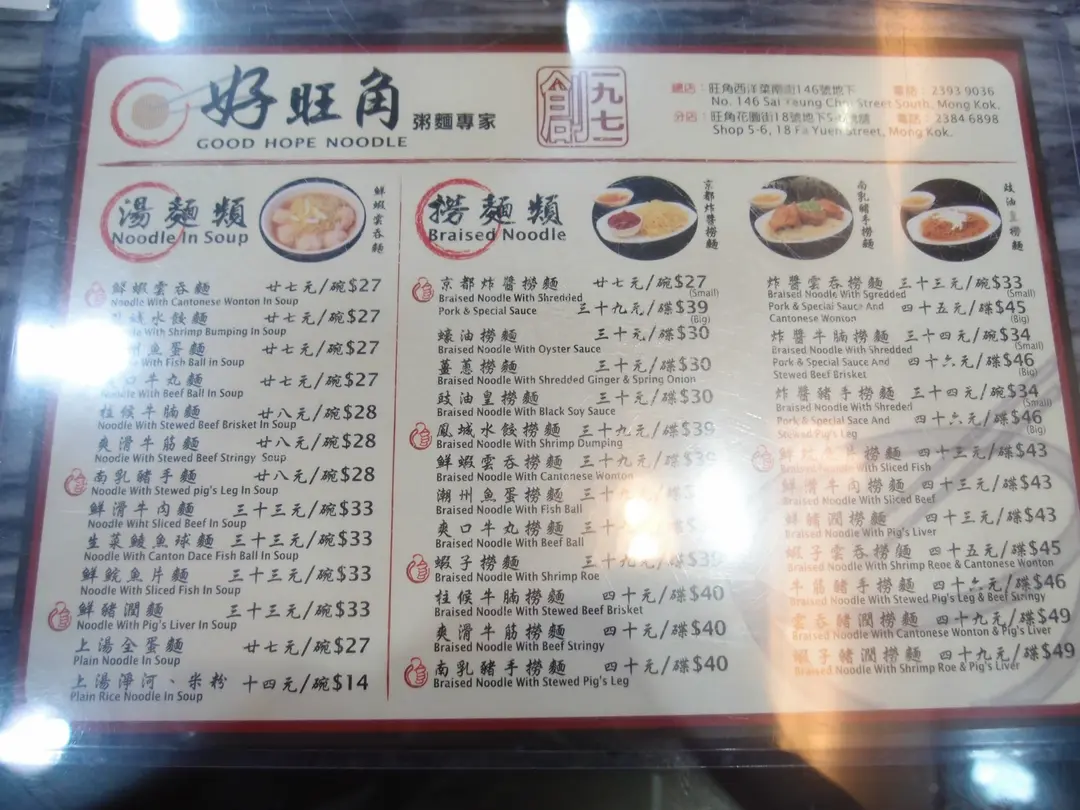 好旺角 粥麵專家
GOOD HOPE NOODLE
創 一九七一
總店：旺角西洋菜南街146號地下 電話：2393 9036
No. 146 Sai Yeung Choi Street South, Mong Kok.
分店：旺角花園街18號地下5-6號舖 電話：2384 6898
Shop 5-6, 18 Fa Yuen Street, Mong Kok.
湯麵類
Noodle In Soup
鮮蝦雲吞麵
鮮蝦雲吞麵 廿七元/碗$27
Noodle With Cantonese Wonton In Soup
城水餃麵 廿七元/碗$27
With Shrimp Bumping In Soup
州魚蛋麵 廿七元/碗$27
With Fish Ball in Soup
口牛丸麵 廿七元/碗$27
With Beef Ball In Soup
柱侯牛腩麵 廿八元/碗$28
Noodle With Stewed Beef Brisket In Soup
爽滑牛筋麵 廿八元/碗$28
Noodle With Stewed Beef Stringy Soup
南乳豬手麵 廿八元/碗$28
Noodle With Stewed pig's Leg In Soup
鮮滑牛肉麵 三十三元/碗$33
Noodle Wiht Sliced Beef In Soup
生菜鯪魚球麵 三十三元/碗$33
Noodle With Canton Dace Fish Ball In Soup
鮮鯇魚片麵 三十三元/碗$33
Noodle With Sliced Fish In Soup
鮮豬潤麵 三十三元/碗$33
Noodle With Pig's Liver In Soup
上湯全蛋麵 廿七元/碗$27
Plain Noodle In Soup
上湯淨河、米粉 十四元/碗$14
Plain Rice Noodle In Soup
撈麵類
Braised Noodle
京都炸醬撈麵
南乳豬手撈麵
豉油皇撈麵
京都炸醬撈麵 廿七元/碗$27
Braised Noodle With Shredded (Small)
Pork & Special Sauce 三十九元/碟$39
(Big)
蠔油撈麵 三十元/碟$30
Braised Noodle With Oyster Sauce
薑蔥撈麵 三十元/碟$30
Braised Noodle With Shredded Ginger & Spring Onion
豉油皇撈麵 三十元/碟$30
Braised Noodle With Black Soy Sauce
鳳城水餃撈麵 三十九元/碟$39
Braised Noodle With Shrimp Dumping
鮮蝦雲吞撈麵 三十九元/碟$39
Braised Noodle With Cantonese Wonton
潮州魚蛋撈麵 三十
Braised Noodle With Fish Ball
爽口牛丸撈麵 三十
Braised Noodle With Beef Ball
蝦子撈麵 三十九元/碟$39
Braised Noodle With Shrimp Roe
柱侯牛腩撈麵 四十元/碟$40
Braised Noodle With Stewed Beef Brisket
爽滑牛筋撈麵 四十元/碟$40
Braised Noodle With Beef Stringy
南乳豬手撈麵 四十元/碟$40
Braised Noodle With Stewed Pig's Leg
炸醬雲吞撈麵 三十三元/碗$33
Braised Noodle With Sgredded (Small)
Pork & Special Sauce And 四十五元/碟$45
Cantonese Wonson (Big)
炸醬牛腩撈麵 三十四元/碗$34
Braised Noodle With Shredded (Small)
Pork & Special Sauce And 四十六元/碟$46
Stewed Beef Brisket (Big)
炸醬豬手撈麵 三十四元/碗$34
Braised Noodle With Shreded (Small)
Pork & Special Sace And 四十六元/碟$46
Stewed Pig's Leg (Big)
撈麵 四十三元/碟$43
Braised Noodle With Sliced Fish
鮮滑牛肉撈麵 四十三元/碟$43
Braised Noodle With Sliced Beef
鮮豬潤撈麵 四十三元/碟$43
Braised Noodle With Pig's Liver
蝦子雲吞撈麵 四十五元/碟$45
Braised Noodle With Shrimp Reoe & Cantonese Wonton
牛筋豬手撈麵 四十六元/碟$46
Braised Noodle With Stewed Pig's Leg & Beef Stringy
雲吞豬潤撈麵 四十九元/碟$49
Braised Noodle With Cantonese Wonton & Pig's Liver
蝦子豬潤撈麵 四十九元/碟$49
Braised Noodle With Shrimp Roe & Pig's Liver